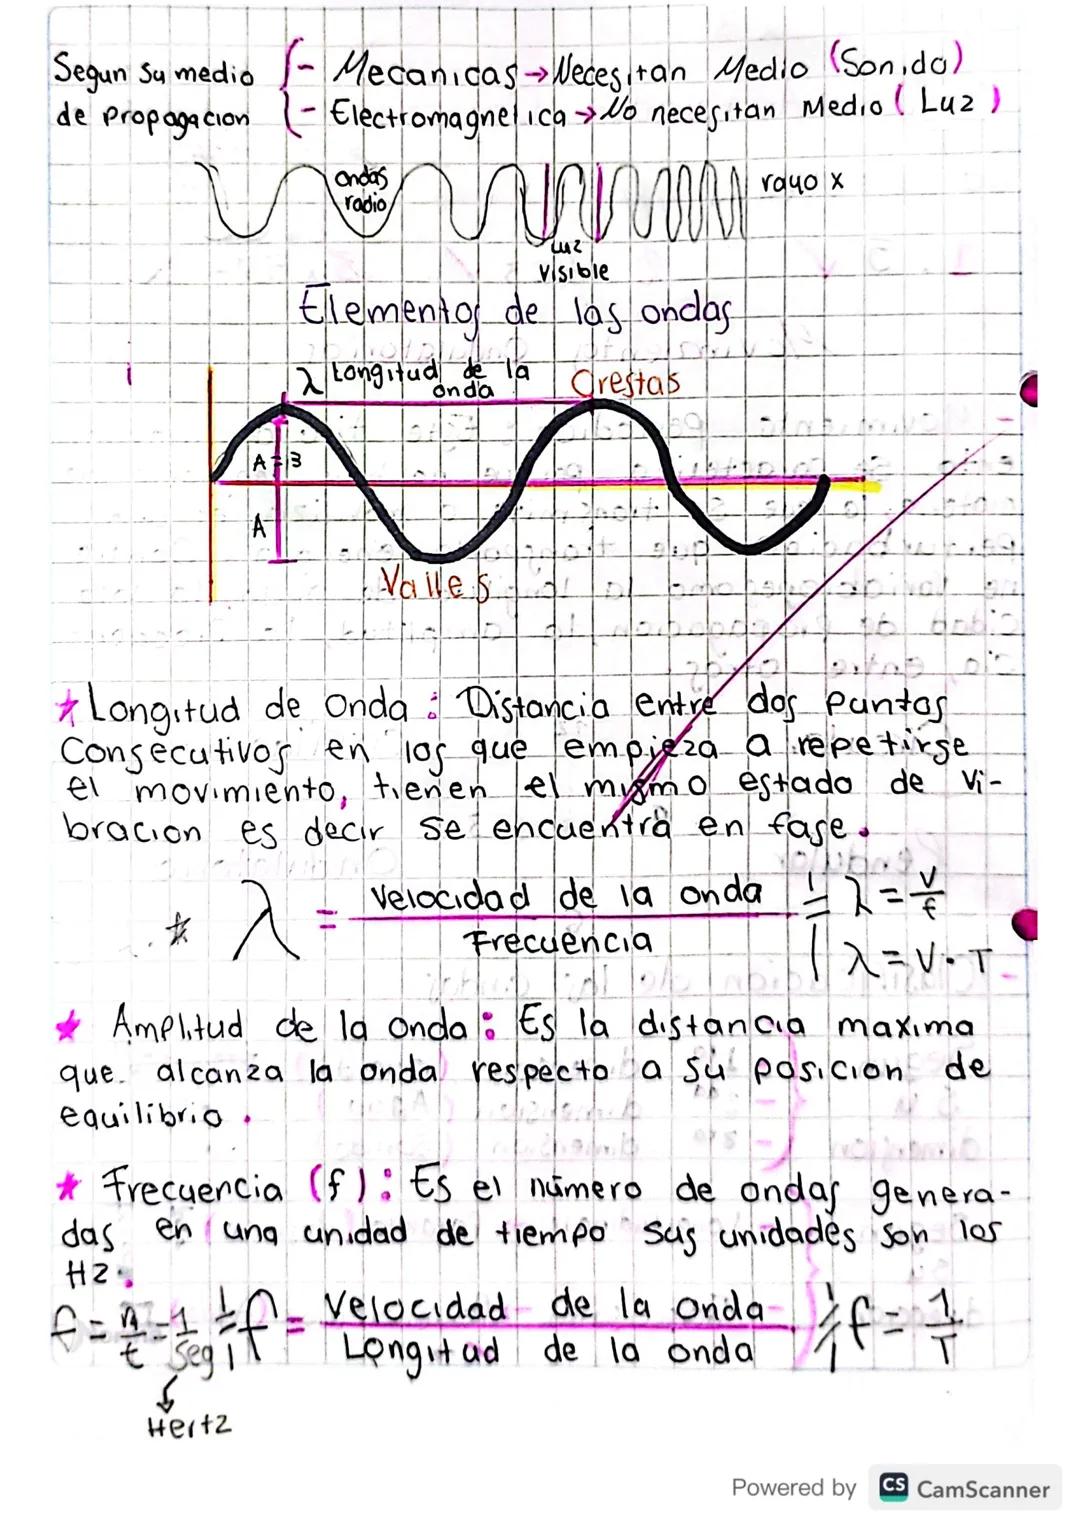 Segun su medio
de propagacion
- Mecanicas → Necesitan Medio (Sonido)
- Electromagnetica → No necesitan Medio (Luz)
ondas
radio
rayo x
Luz
Visible
Elementos de las ondas
λ Longitud de la
onda
Crestas
A = 3
A
Valles
* Longitud de Onda : Distancia entre dos puntos
Consecutivos en los que empieza a repetirse
el movimiento, tienen el mismo estado de Vi-
bracion es decir se encuentra en fase.
* λ = Velocidad de la onda
Frecuencia
λ = v/f
λ = v · T
* Amplitud de la onda : Es la distancia maxima
que alcanza la onda respecto a su posicion de
equilibrio .
* Frecuencia (f) : Es el número de ondas genera-
das en una unidad de tiempo sus unidades son los
Hz .
f = n/t = 1/seg
f = Velocidad de la onda
Longitud de la onda
f = 1/T
Hertz
Powered by CS CamScanner